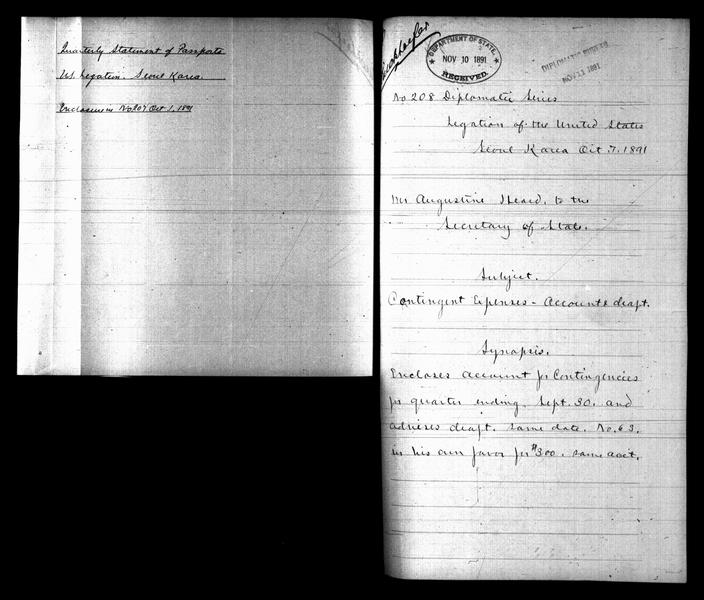 Quarterly Statement of Passports
U.S. Legation. Seoul Korea.
Enclosure in No 207 Oct 1, 1891
DEPARTMENT OF STATE.
NOV 10 1891
RECEIVED.
DIPLOMATIC BUREAU
NOV 11 1891
No 208 Diplomatic Series
Legation of the United States
Seoul Korea Oct. 7. 1891
Mr Augustine Heard. to the
Secretary of State.
Subject.
Contingent Expenses - Account & draft.
Synopsis.
Encloses account for Contingencies
for quarter ending Sept. 30. and
advises draft. same date. No. 63.
in his own favor for $300. same acct.